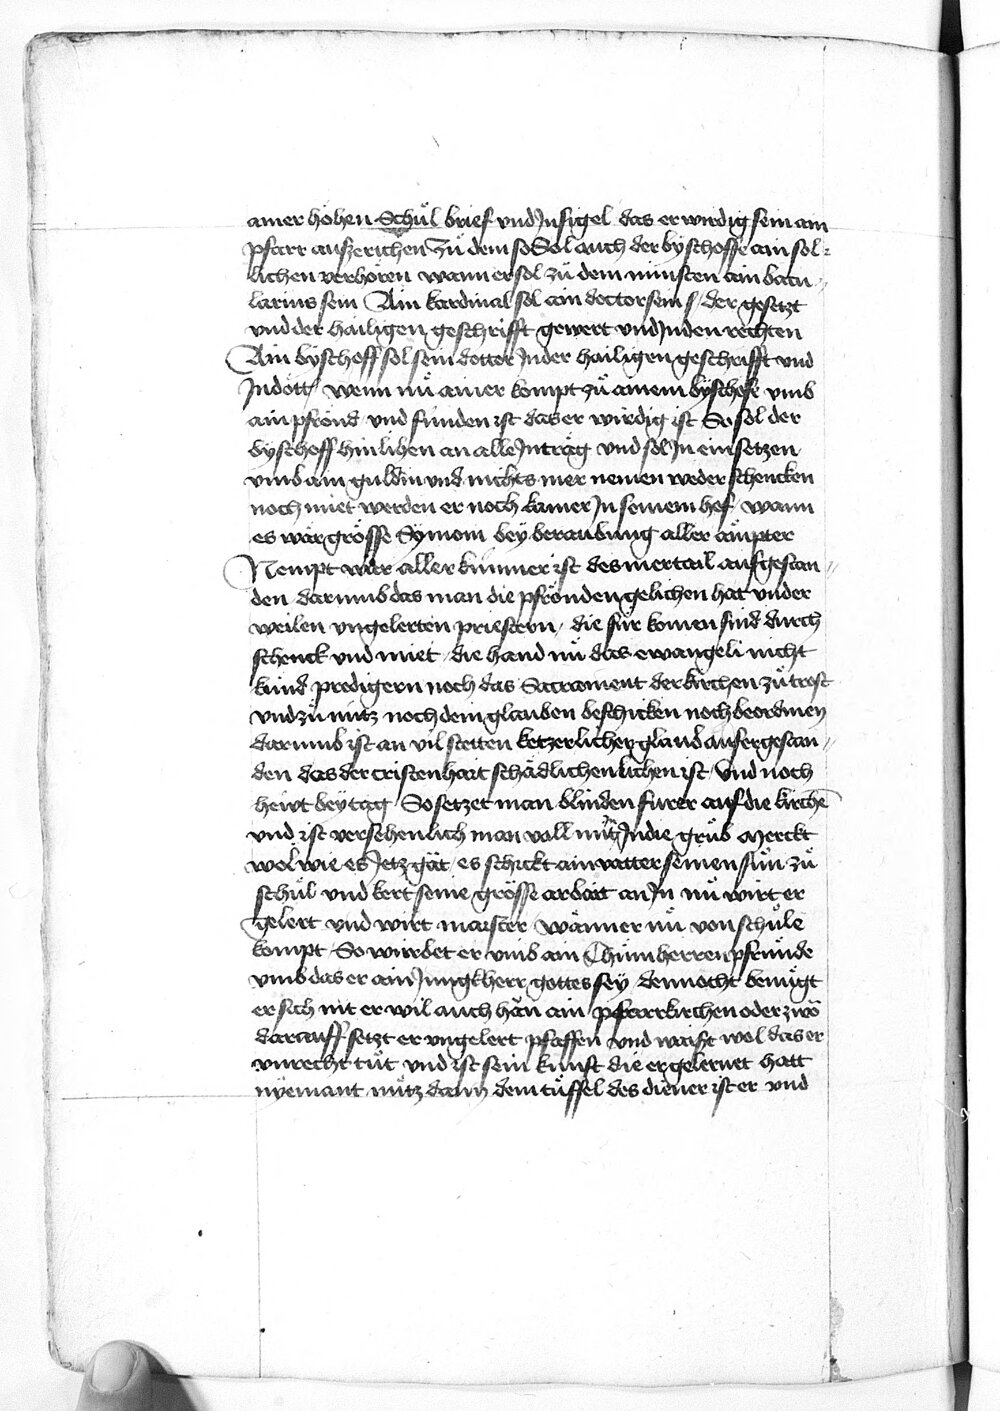 ainer hohen Schůl brief vnd Insigel das er wirdig sein ain
pfarr auszerichen Zů dem so Sol auch der byschoffe ain sol-
lichen verhören wann er sol zů dem minsten ain bacu-
larius sein Ain kardinal sol ain doctor sein s der gesetzt
vnd der hailigen geschrifft gewert vnd In den rechten
Ain byschoff sol sein doctor In der hailigen geschrifft vnd
In dött wenn nů ainer kompt zů ainem byschofe vmb
ain pfrönd vnd funden ist das er wirdig ist So sol der
byschoff hin lihen an alle Inträg vnd sol In ein setzen
vmb ain guldin vnd nichts mer nemen weder schencken
noch miet weder er noch kainer In seinem hof wann
es wär grösse Symoni bey beraubung aller ämpter
Nempt war aller kumer ist des mertail aufgestan-
den darumb das man die pfronden gelichen hat vnder
weilen vngelerten priestern die für komen sind durch
schenck vnd miet die hand nů das ewangeli nicht
kund predigern noch das Sacrament der kirchen zů trost
vnd zů nutz noch dem glauben beschicken noch beordnen
darumb ist an vil stetten ketzerlicher gland aufergestan-
den das der cristenhait schädlichen lichen ist Vnd noch
hewt beytag So setzet man blinden furer auf die kirchē
vnd ist versehenlich man vall mit In die grůb Merckt
wol wie es Jetz gät es schickt ain vatter seinen sůn zů
schůl vnd kert seine grösse arbait an In nů wirt er
gelert vnd wirt maister wanner nů von schůle
kompt So wirbet er vmb ain Chůmherren pfrůnde
vmb das er ain Jungkherr gottes sey dennocht benůgt
er sich nit er wil auch hän ain pfarrkirchen oder zwo
darauff setzt er vngelert pfaffen vnd waist wol das er
vnrecht tůt vnd ist sein kunst die er gelernet hatt
nyemant nůtz dann dem tüffel des diener ist er vnd